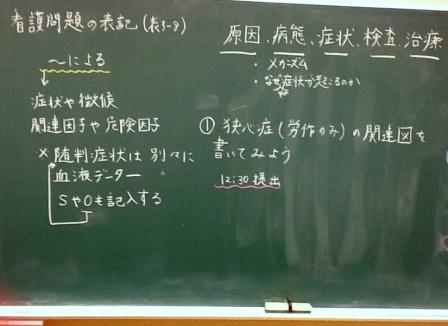 看護問題の表記(表3-8)
〜による
症状や徴候
関連因子や危険因子
×随判症状は別々に
血液データー
SやOも記入する
原因、病態、症状、検査、治療
・メカニズム
・なぜ症状が起こるのか
① 狭心症(労作のみ)の関連図を
書いてみよう
12:30提出